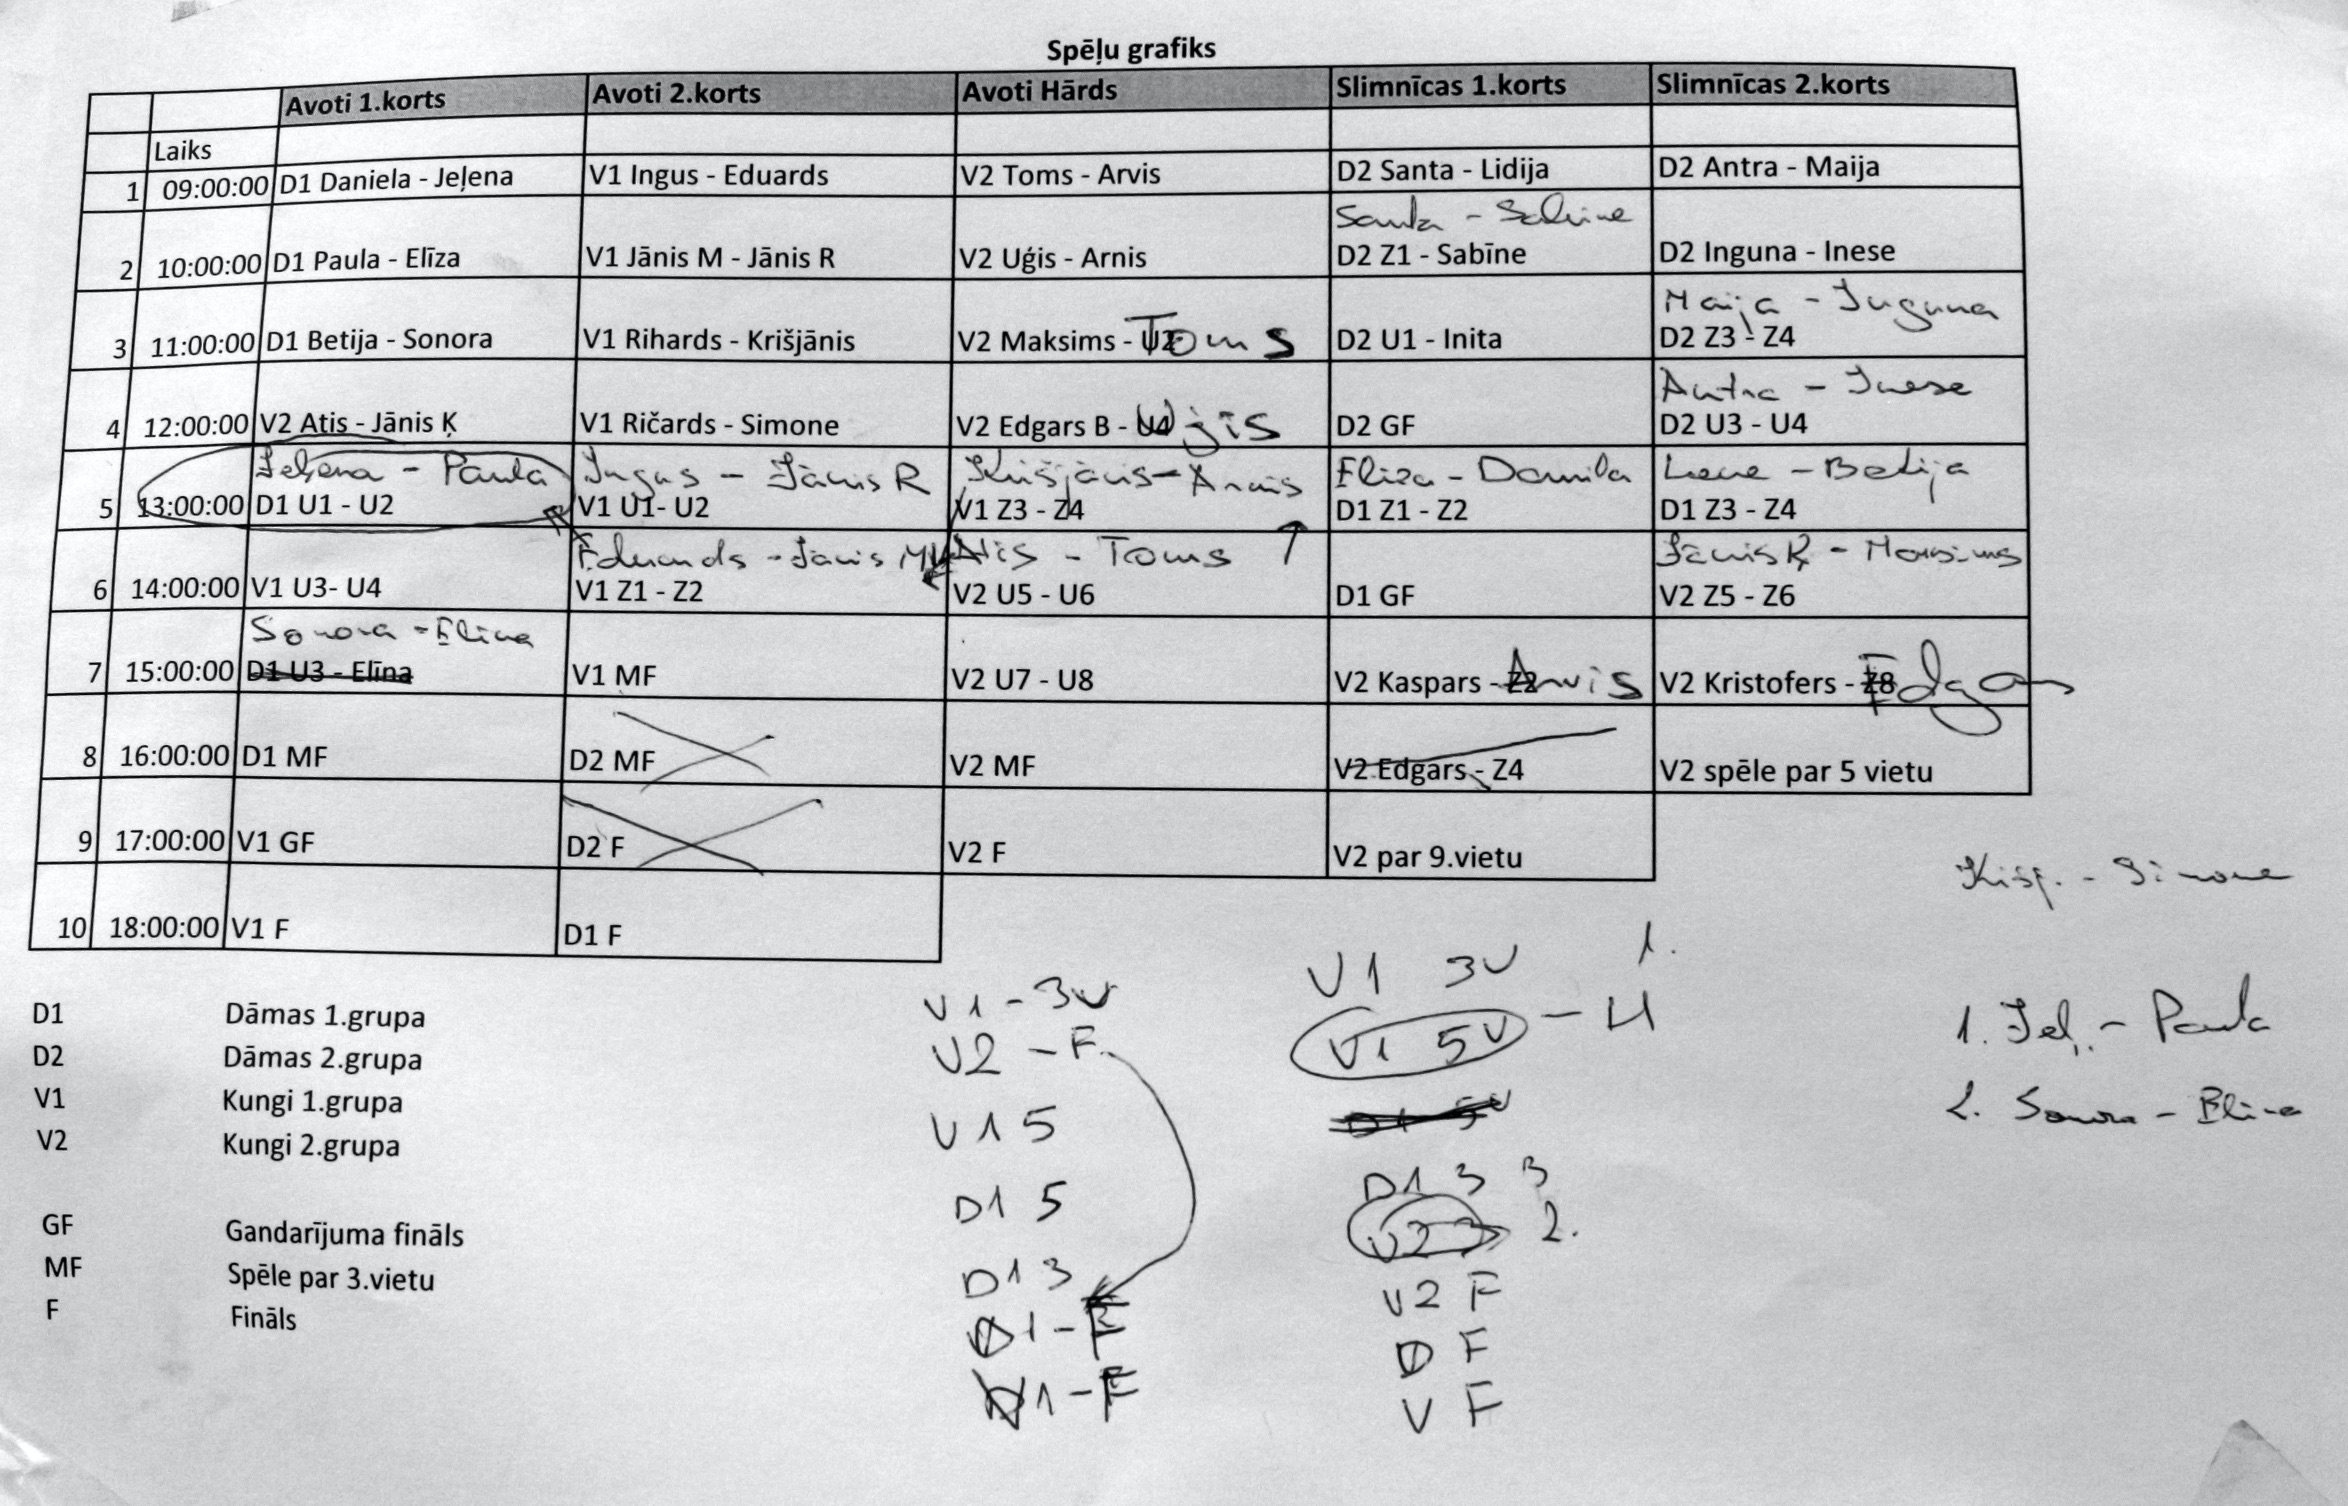 Spēļu grafiks
Avoti 1.korts Avoti 2.korts Avoti Hārds Slimnīcas 1.korts Slimnīcas 2.korts
Laiks
1 09:00:00 D1 Daniela - Jeļena V1 Ingus - Eduards V2 Toms - Arvis D2 Santa - Lidija D2 Antra - Maija
Santa - Sabine
2 10:00:00 D1 Paula - Elīza V1 Jānis M - Jānis R V2 Uģis - Arnis D2 Z1 - Sabīne D2 Inguna - Inese
Maija - Inguna
3 11:00:00 D1 Betija - Sonora V1 Rihards - Krišjānis V2 Maksims - U2 Toms D2 U1 - Inita D2 Z3 - Z4
Antra - Inese
4 12:00:00 V2 Atis - Jānis Ķ V1 Ričards - Simone V2 Edgars B - U4 Uģis D2 GF D2 U3 - U4
Jeļena - Paula Ingus - Jānis R Krišjānis - Arnis Eliza - Daniela - Betija
5 13:00:00 D1 U1 - U2 V1 U1- U2 V1 Z3 - Z4 D1 Z1 - Z2 D1 Z3 - Z4
Eduards - Jānis M Atis - Toms Jānis Ķ - Maksims
6 14:00:00 V1 U3- U4 V1 Z1 - Z2 V2 U5 - U6 D1 GF V2 Z5 - Z6
Sonora - Elina
7 15:00:00 D1 U3 - Elīna V1 MF V2 U7 - U8 V2 Kaspars - Z2 Arvis V2 Kristofers - Z8 Edgars
8 16:00:00 D1 MF D2 MF V2 MF V2 Edgars - Z4 V2 spēle par 5 vietu
9 17:00:00 V1 GF D2 F V2 F V2 par 9.vietu
10 18:00:00 V1 F D1 F
- Simone
D1 Dāmas 1.grupa
D2 Dāmas 2.grupa
V1 Kungi 1.grupa
V2 Kungi 2.grupa
GF Gandarījuma fināls
MF Spēle par 3.vietu
F Fināls
V1 - 3V
V2 - F
V1 5
D1 5
D1 3
D1 - F
V1 - F
V1 3V 1.
V1 5V - U
D1 5V
D1 3 3
V2 3 2.
V2 F
D F
V F
1. Jeļ. - Paula
2. Sonora - Elina